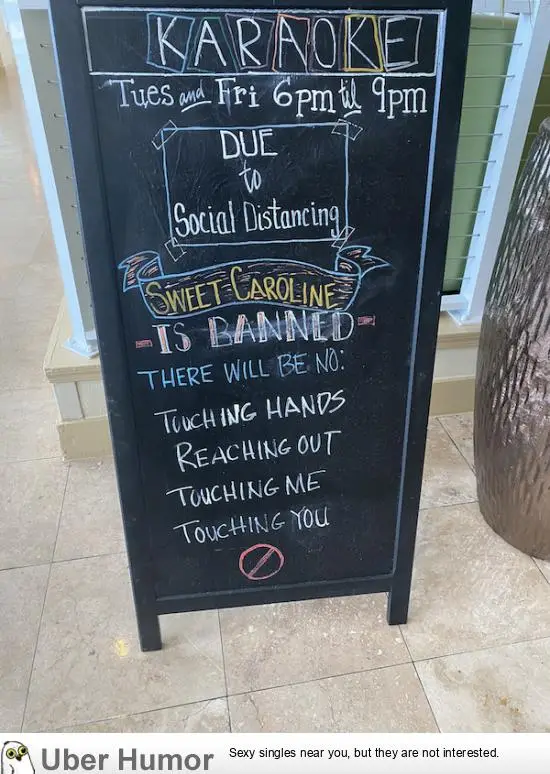 KARAOKE
Tues and Fri 6pm til 9pm
DUE
to
Social Distancing
SWEET CAROLINE
- IS BANNED -
THERE WILL BE NO:
TOUCHING HANDS
REACHING OUT
TOUCHING ME
TOUCHING YOU
Uber Humor
Sexy singles near you, but they are not interested.